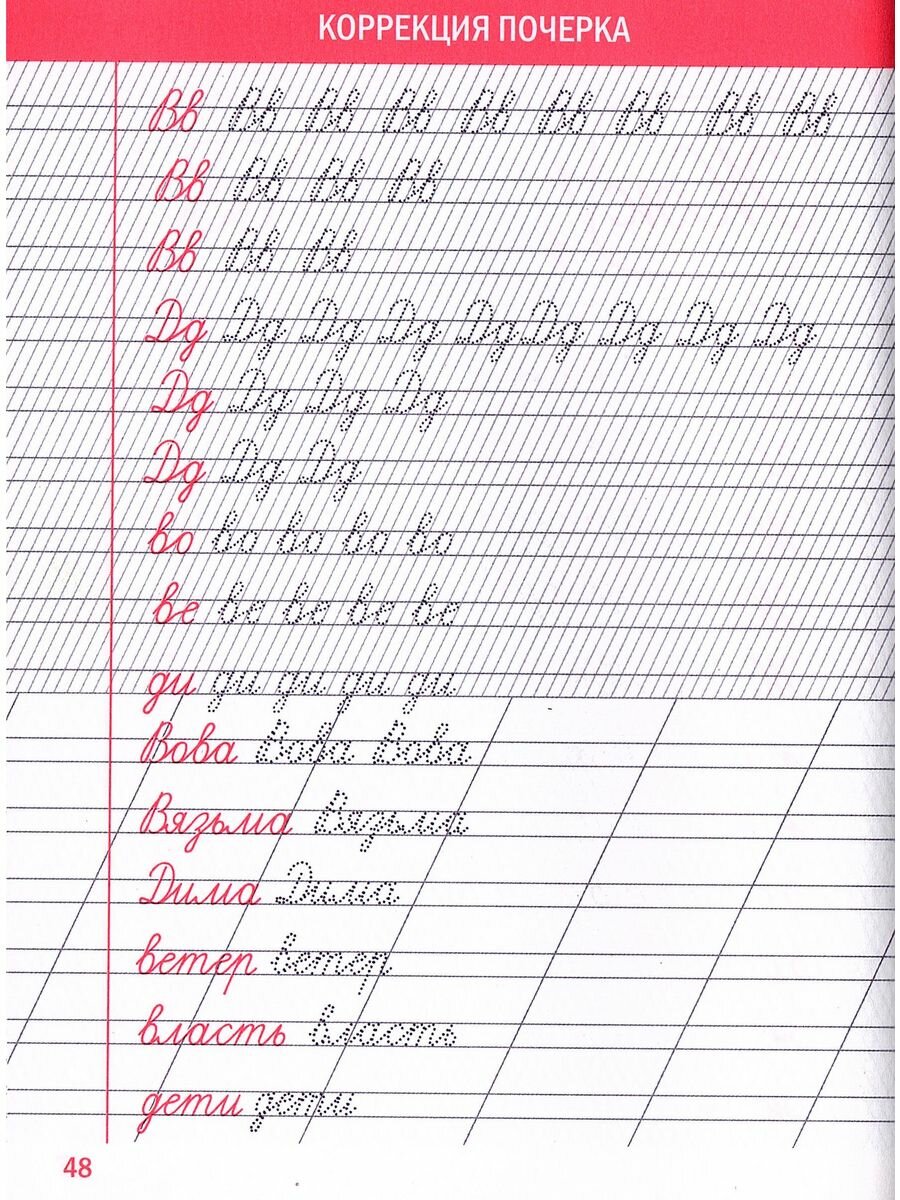 КОРРЕКЦИЯ ПОЧЕРКА
Вв Вв Вв Вв Вв Вв Вв Вв Вв
Вв Вв Вв Вв
Вв Вв Вв
Дд Дд Дд Дд Дд Дд Дд Дд Дд
Дд Дд Дд Дд
Дд Дд Дд
во во во во во
ве ве ве ве ве
ди ди ди ди ди
Вова Вова Вова
Вязьма Вязьма
Дима Дима
ветер ветер
власть власть
дети дети
48